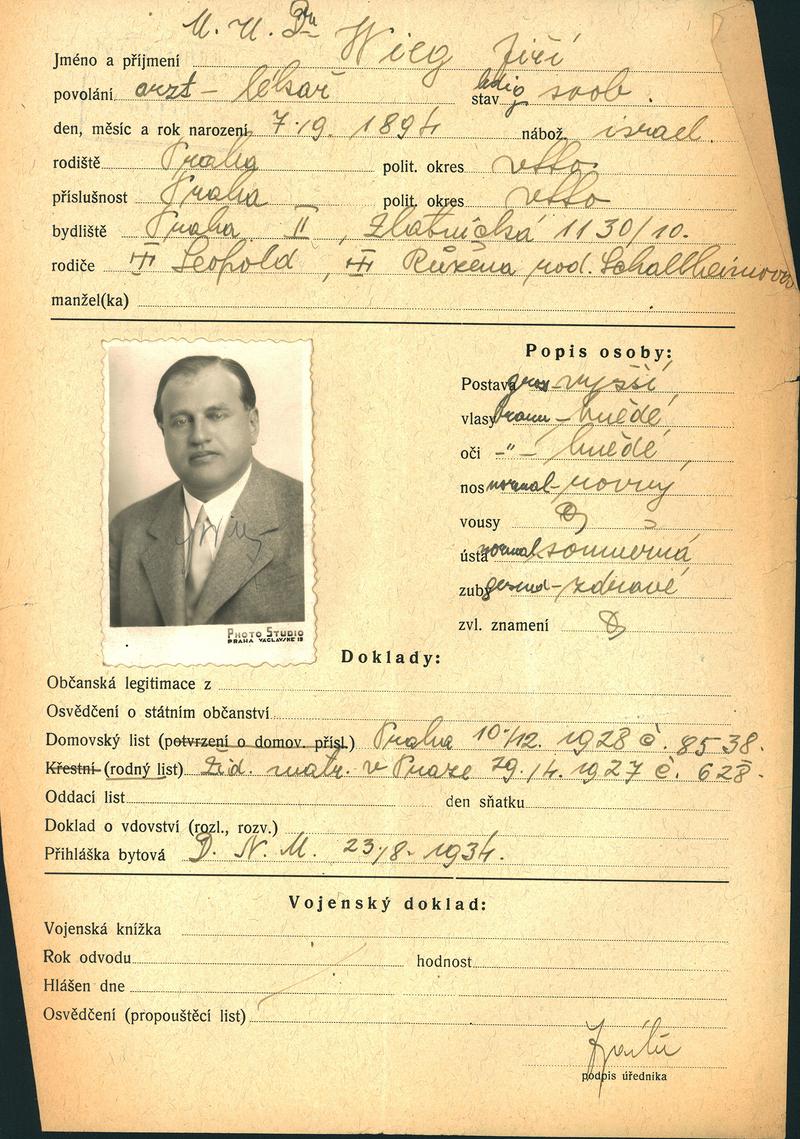 M. U. Dr
Jméno a příjmení Wieg Jiří
povolání arzt – lékař stav ledig svob.
den, měsíc a rok narození 7./9. 1894 nábož. israel.
rodiště Praha polit. okres dtto
příslušnost Praha polit. okres dtto
bydliště Praha II, Zlatnická 1130/10.
rodiče Leopold, Růžena roz. Schallheimova
manžel(ka)
Popis osoby:
Postava gross vyšší,
vlasy braun – hnědé,
oči –"– hnědé,
nos normal – rovný
vousy
ústa normal souměrná
zuby gesund – zdravé
zvl. znamení
Wieg
PHOTO STUDIO
PRAHA VÁCLAVSKÉ 19
Doklady:
Občanská legitimace z
Osvědčení o státním občanství
Domovský list (potvrzení o domov. přísl.) Praha 10./12. 1928 č. 8538.
Křestní (rodný list) Žid. matr. v Praze 29./4. 1927 č. 628.
Oddací list den sňatku
Doklad o vdovství (rozl., rozv.)
Přihláška bytová D. N. M. 23./8. 1934.
Vojenský doklad:
Vojenská knížka
Rok odvodu hodnost
Hlášen dne
Osvědčení (propouštěcí list)
podpis úředníka